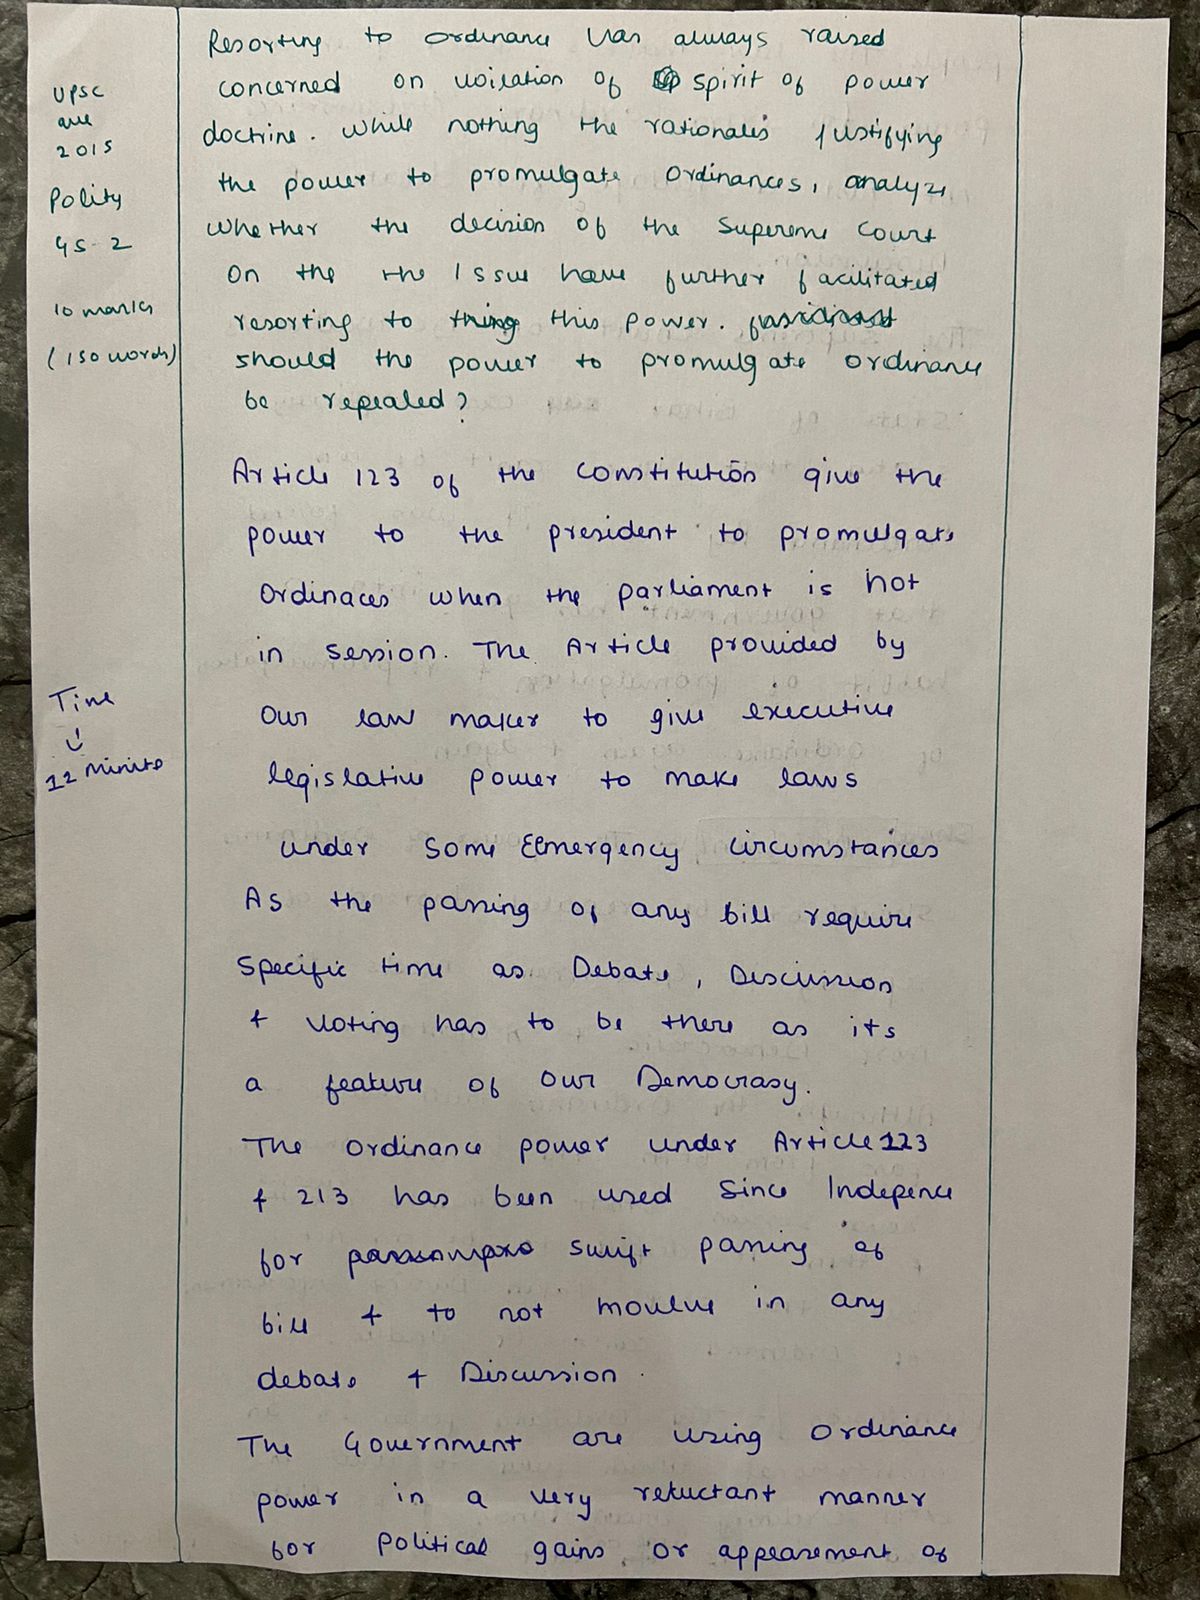 UPSC
que
2015
Polity
GS-2
10 marks
(150 words)
Resorting to ordinance has always raised
concerned on voilation of spirit of power
doctrine. While nothing the rationales justifying
the power to promulgate ordinances, analyze
whether the decision of the Supreme Court
on the the issue have further facilitated
resorting to this power.
should the power to promulgate ordinance
be repealed?
Time
12 Minute
Article 123 of the constitution give the
power to the president to promulgate
Ordinaces when the parliament is not
in session. The Article provided by
our law maker to give executive
legislative power to make laws
under some Emergency circumstances
As the passing of any bill require
specific time as Debate, Discussion
+ voting has to be there as its
a feature of our Democrasy.
The ordinance power under Article 123
+ 213 has been used since Indepence
for swift passing of
bill + to not moulve in any
debate + Discussion.
The Government are using ordinance
power in a very reluctant manner
for political gains or appeasement of